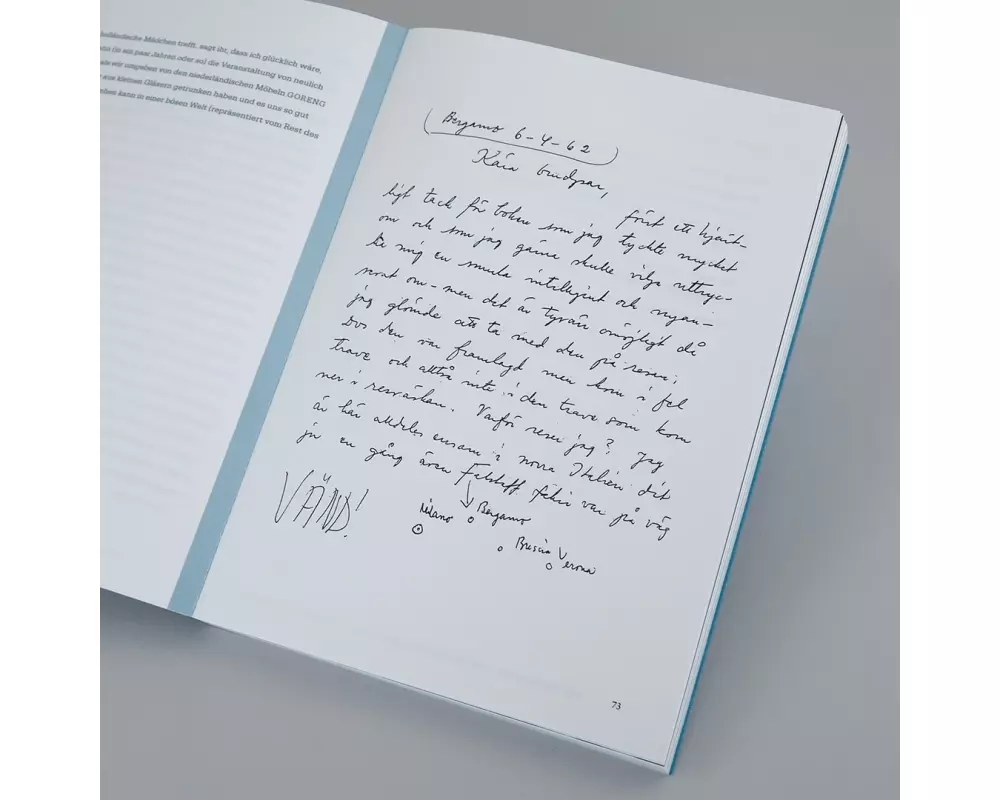 ländische Mädchen trefft, sagt ihr, dass ich glücklich wäre,
ann (in ein paar Jahren oder so) die Veranstaltung von neulich
als wir umgeben von den niederländischen Möbeln GORENG
aus kleinen Gläsern getrunken haben und es uns so gut
kann in einer bösen Welt (repräsentiert vom Rest des
Bergamo 6-4-62
Kära
först ett hjärt-
ligt tack för boken som jag tyckte mycket
om och som jag gärna skulle vilja uttryc-
ka mig en smula intelligent och nyan-
serat om - men det är tyvärr omöjligt då
jag glömde att ta med den på resan;
dvs den var framlagd men kom i fel
trave och alltså inte i den trave som kom
ner i resväskan. Varför reser jag? Jag
är här alldeles ensam i norra Italien: dit
ju en gång även Falstaff fakir var på väg
VÄND!
Milano
Bergamo
Brescia
Verona
73